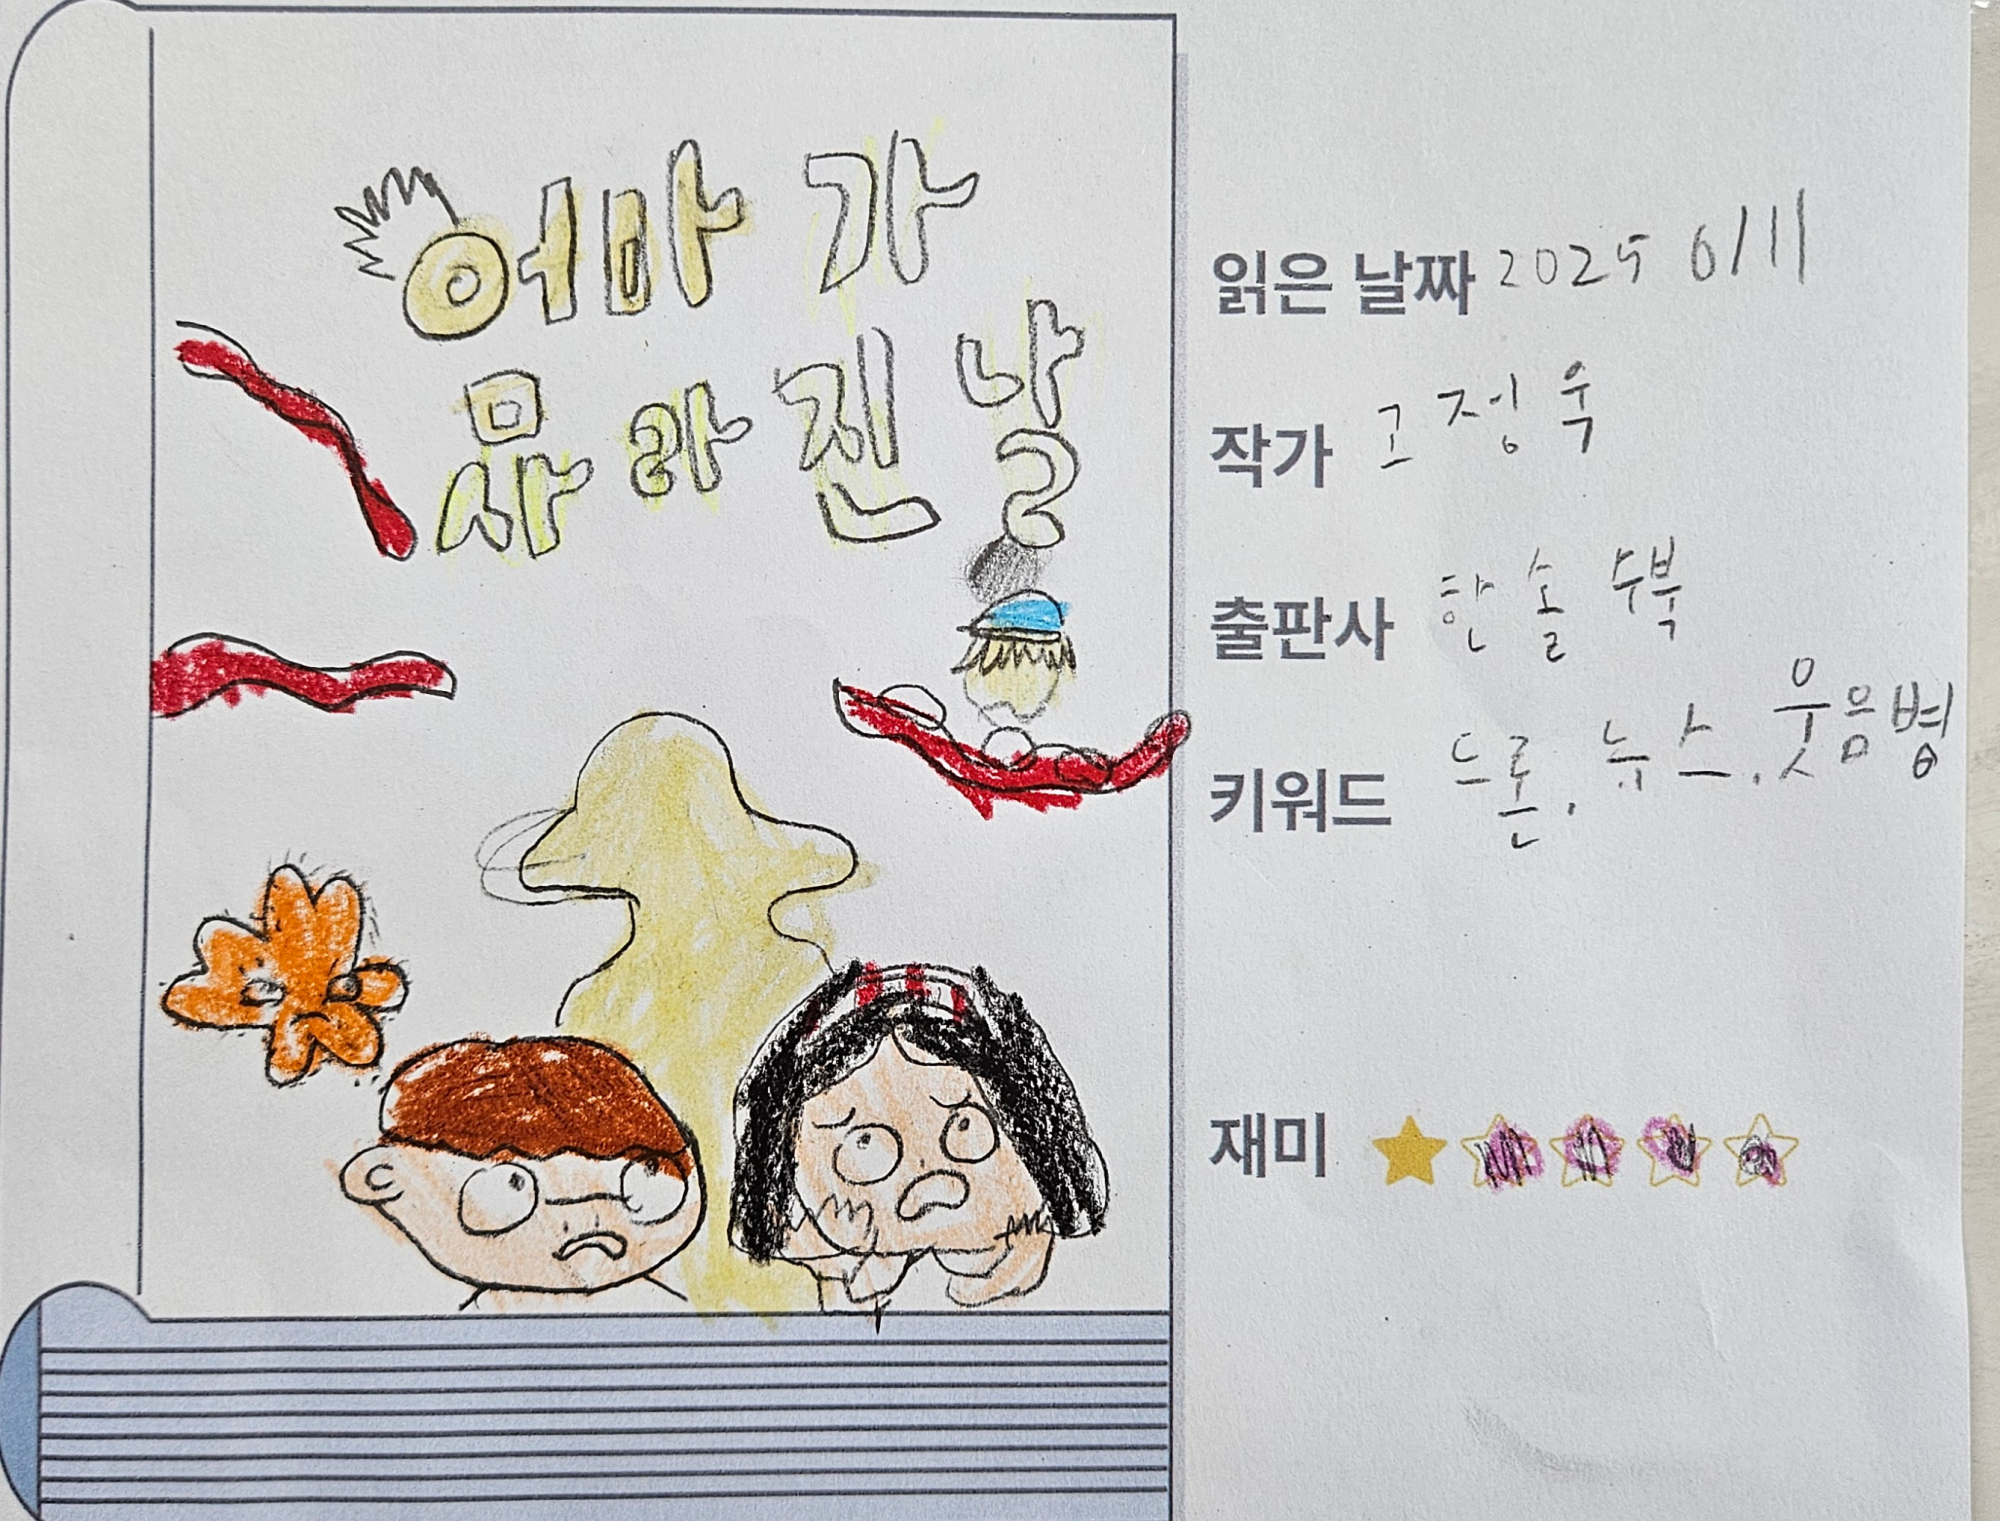 엄마가
사라진 날
읽은 날짜 2025 6/11
작가 고정욱
출판사 한솔수북
키워드 드론, 뉴스, 웃음병
재미